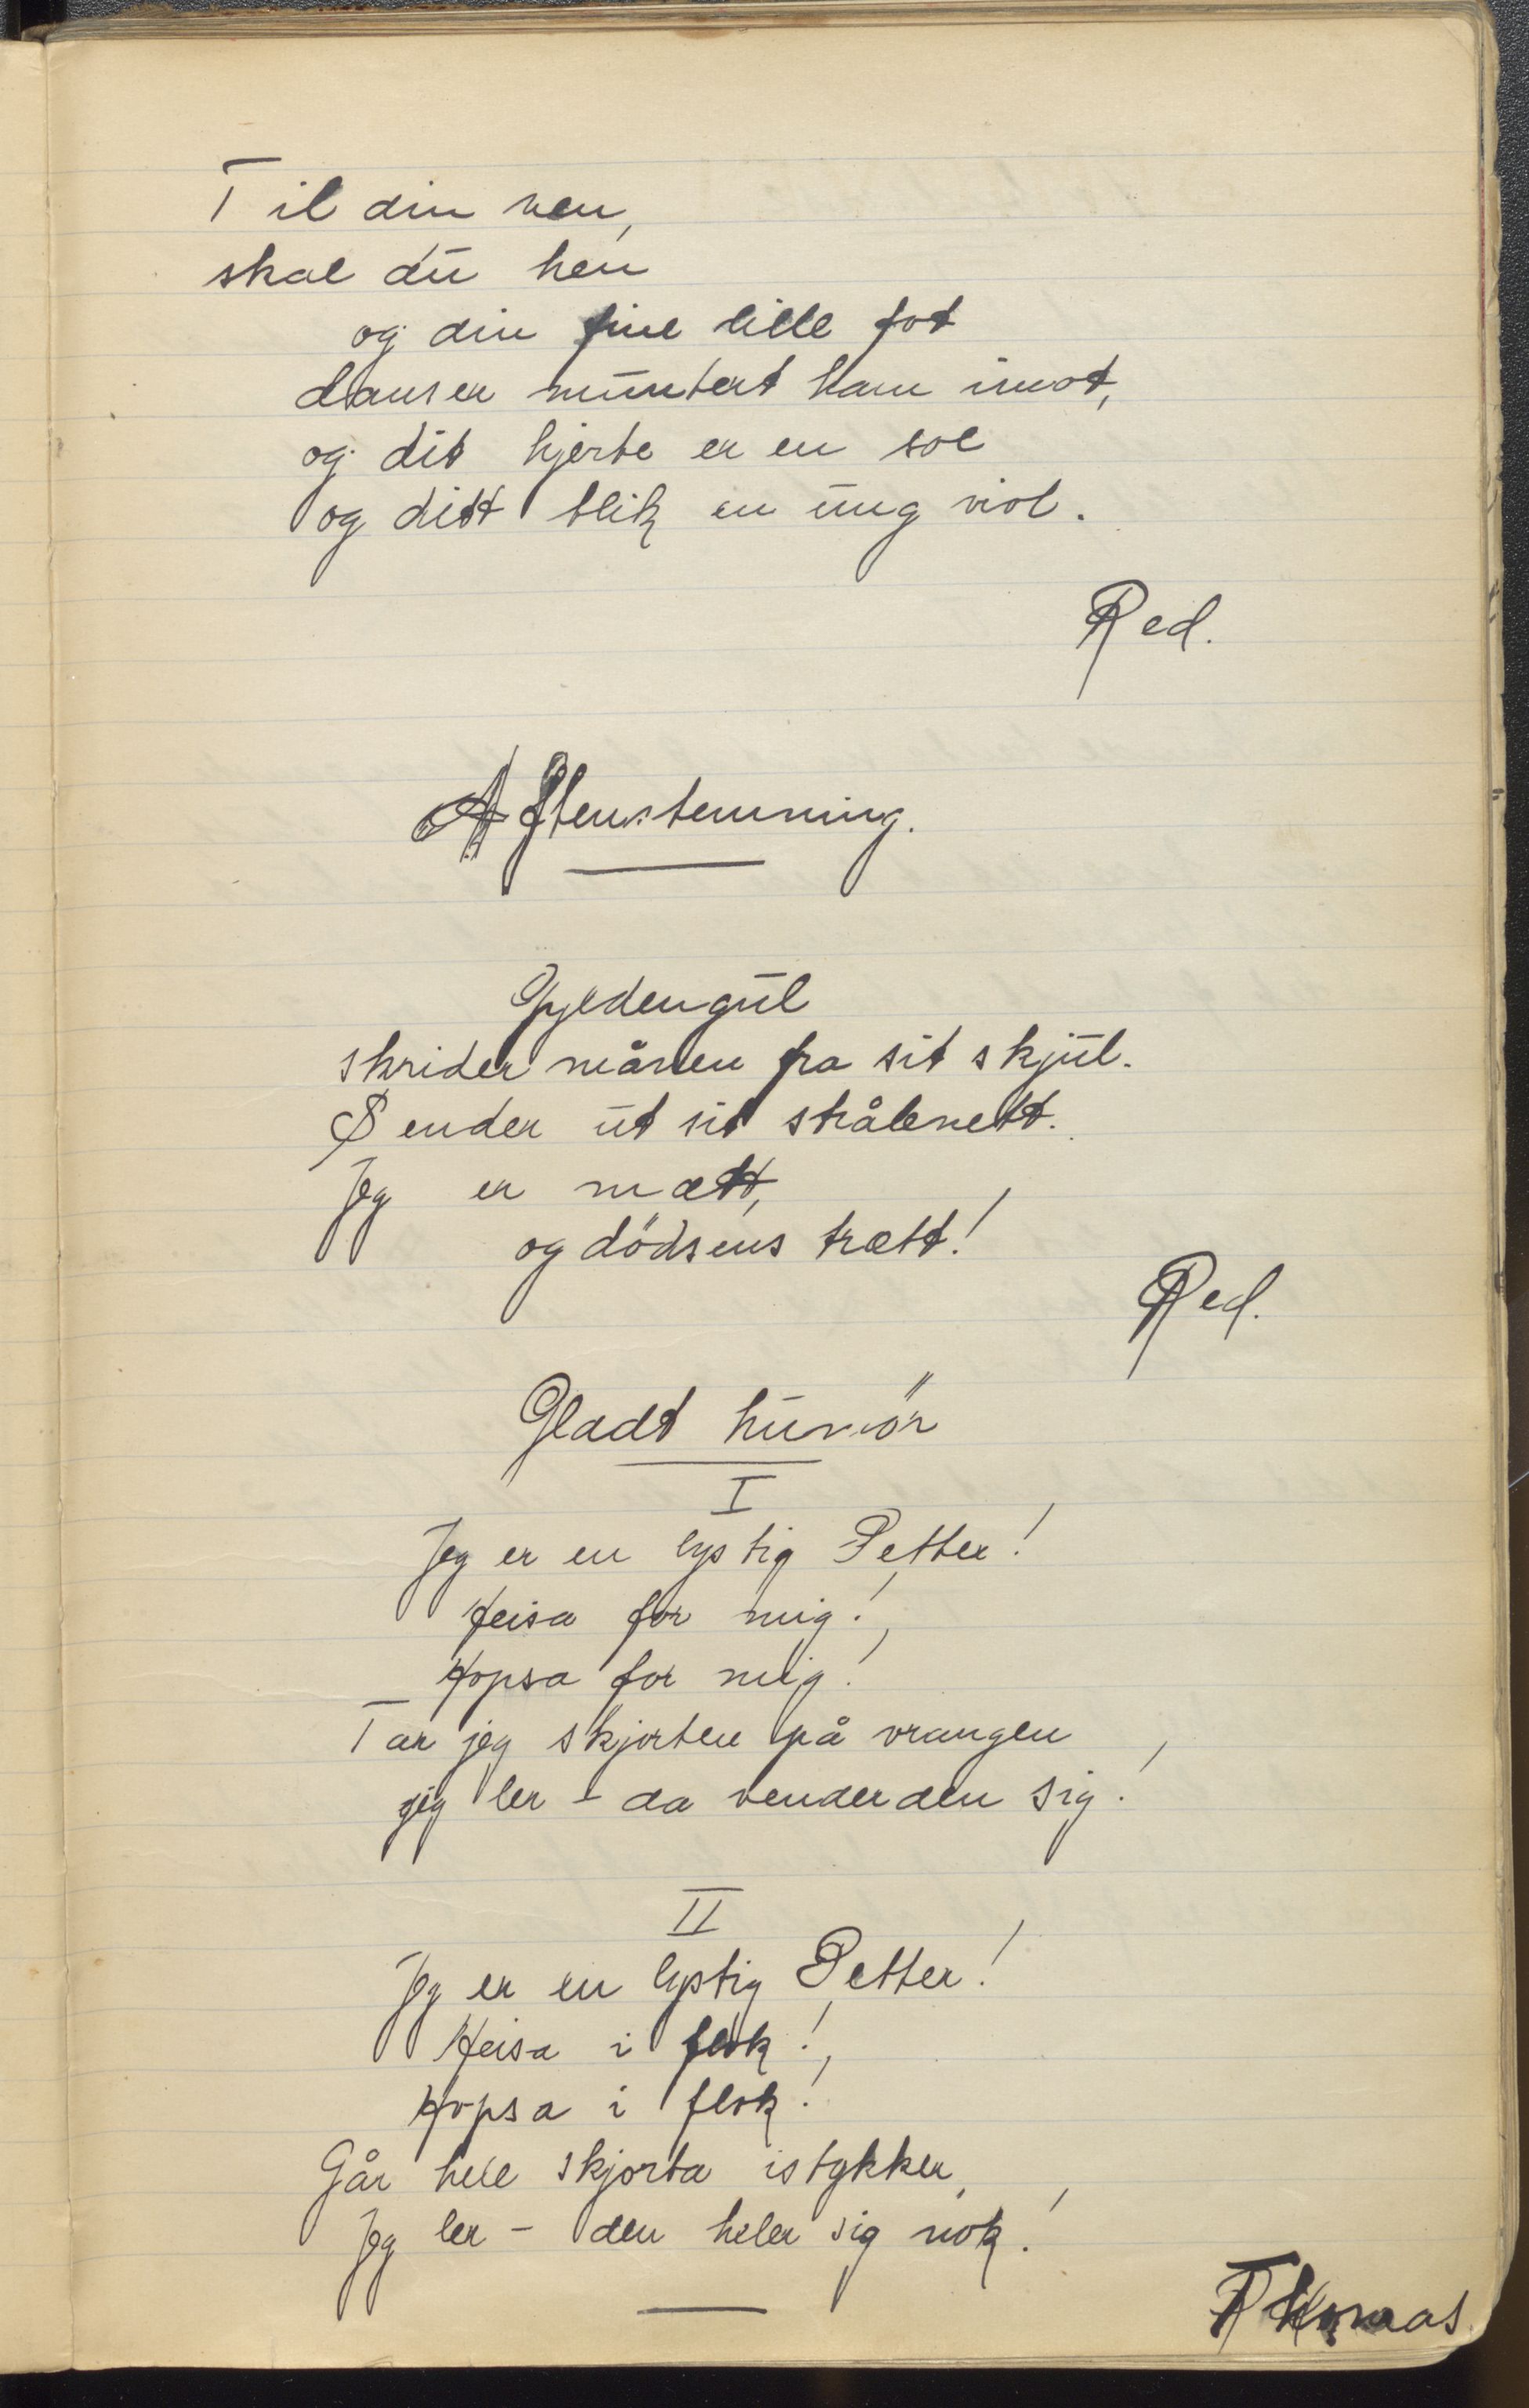 Til din ven,
skal du hen
og din fine lille fot
danser muntert ham imot,
og dit hjerte er en sol
og ditt blik en ung viol.
Red.
Aftenstemning.
Gyldengul
skrider månen fra sit skjul.
Sender ut sit strålenett.
Jeg er mætt,
og dödsens trætt!
Red.
Gladt humör
I
Jeg er en lystig Petter!
Heisa for mig!
Hopsa for mig!
Tar jeg skjorten på vrangen
jeg ler - da vender den sig!
II
Jeg er en lystig Petter!
Heisa i flok!
Hopsa i flok!
Går hele skjorta istykker,
Jeg ler - den heler sig nok!
Thomas